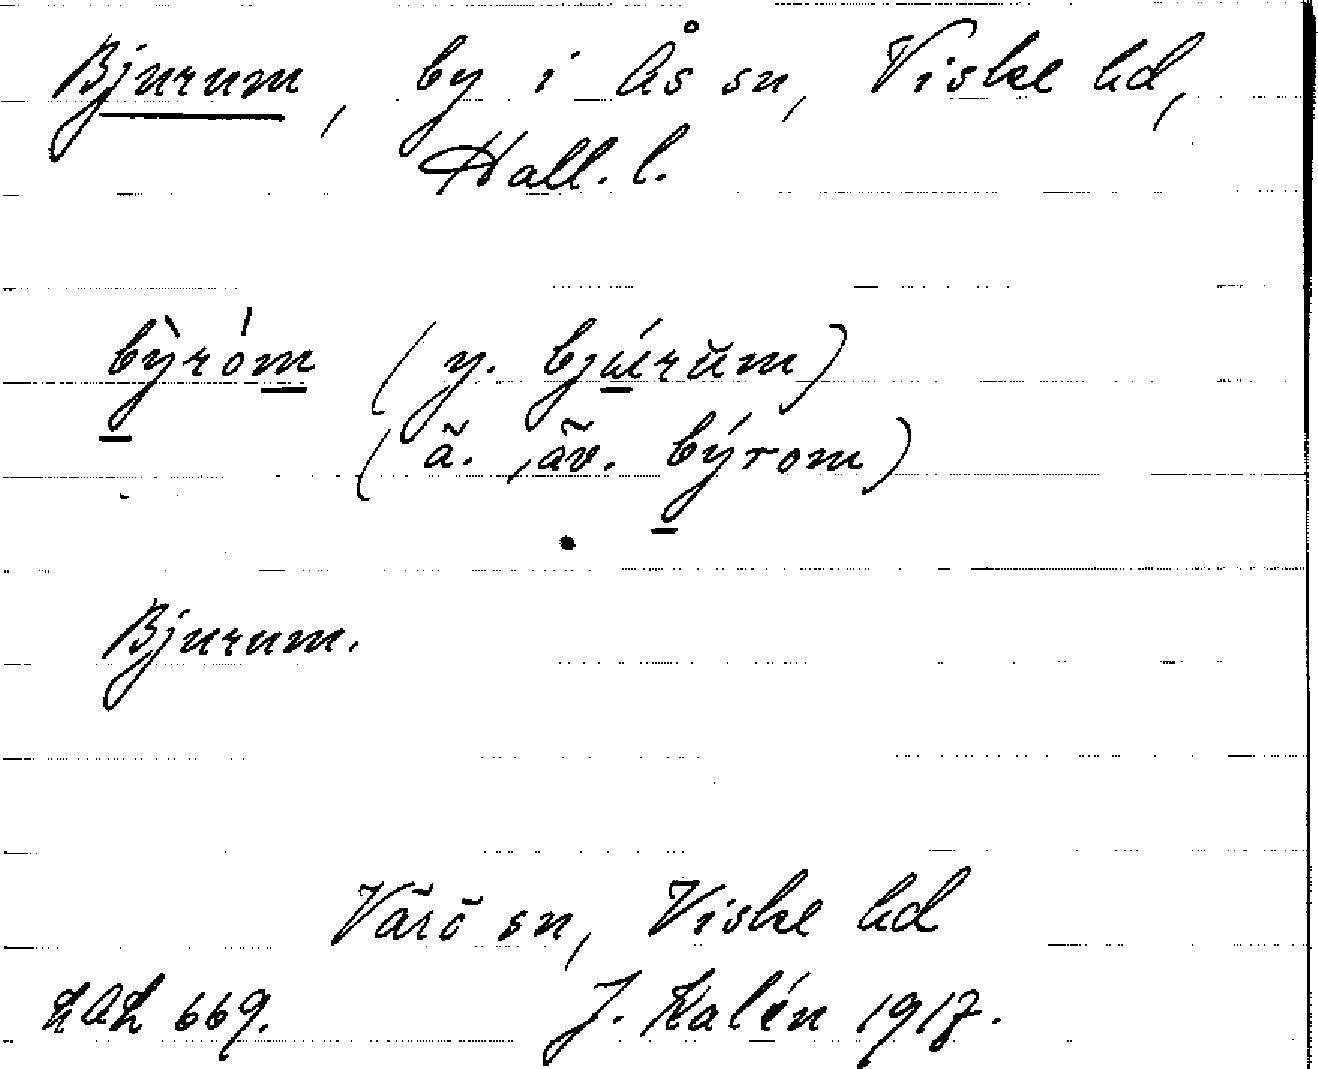 Bjurum, by i Ås sn, Viske hd,
Hall. l.
bỳróm (y. bjúrŭm)
(ä. äv. býrom)
Bjurum.
Värö sn, Viske hd
LAL 669. J. Kalén 1917.